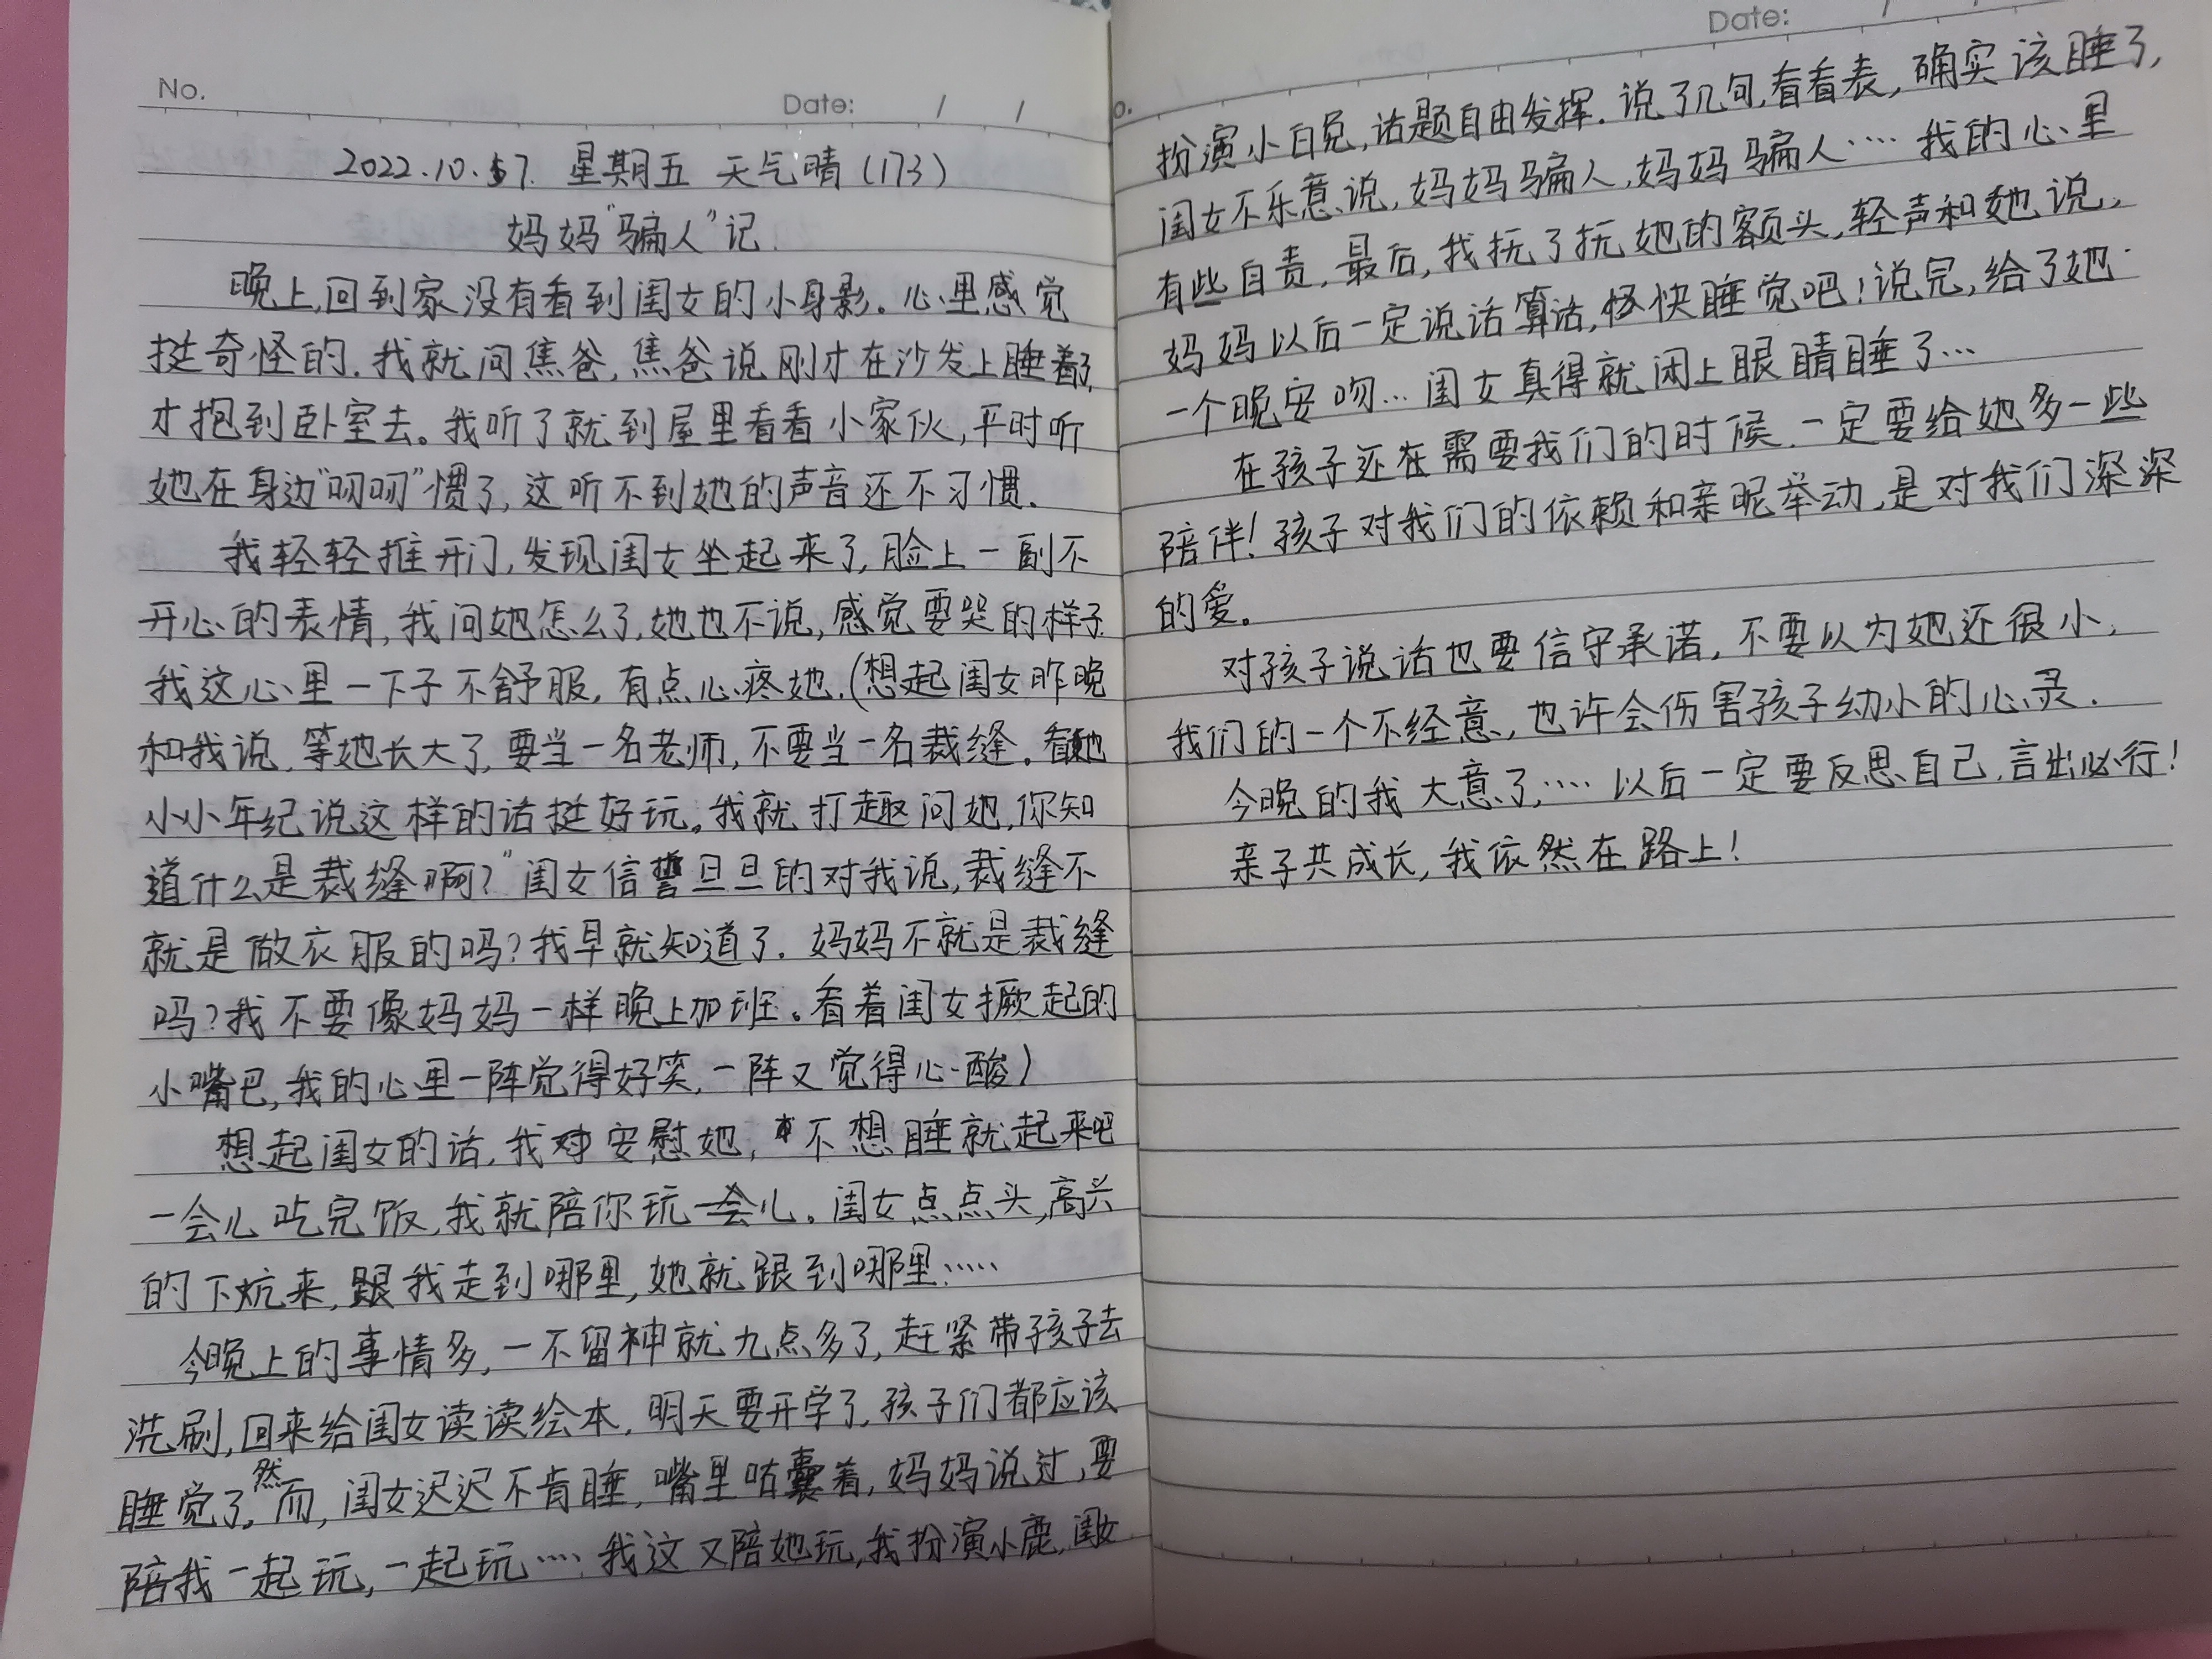 No.
Date: / /
2022.10.7. 星期五 天气晴(173)
妈妈"骗人"记
晚上,回到家没有看到闺女的小身影。心里感觉
挺奇怪的.我就问焦爸,焦爸说刚才在沙发上睡着了,
才抱到卧室去。我听了就到屋里看看小家伙,平时听
她在身边"叨叨"惯了,这听不到她的声音还不习惯.
我轻轻推开门,发现闺女坐起来了,脸上一副不
开心的表情,我问她怎么了,她也不说,感觉要哭的样子.
我这心里一下子不舒服,有点心疼她.(想起闺女昨晚
和我说,等她长大了,要当一名老师,不要当一名裁缝。看她
小小年纪说这样的话挺好玩。我就打趣问她,你知
道什么是裁缝啊?"闺女信誓旦旦的对我说,裁缝不
就是做衣服的吗?我早就知道了.妈妈不就是裁缝
吗?我不要像妈妈一样晚上加班。看着闺女撅起的
小嘴巴,我的心里一阵觉得好笑,一阵又觉得心酸)
想起闺女的话,我对安慰她,不想睡就起来吧
一会儿吃完饭,我就陪你玩一会儿。闺女点点头,高兴
的下炕来,跟我走到哪里,她就跟到哪里……
今晚上的事情多,一不留神就九点多了,赶紧带孩子去
洗刷,回来给闺女读读绘本,明天要开学了,孩子们都应该
睡觉了。然而,闺女迟迟不肯睡,嘴里咕囊着,妈妈说过,要
陪我一起玩,一起玩…;我这又陪她玩,我扮演小鹿,闺女
Date: / /
o.
扮演小白兔,话题自由发挥.说了几句,看看表,确实该睡了,
闺女不乐意说,妈妈骗人,妈妈骗人….我的心里
有些自责,最后,我抚了抚她的额头,轻声和她说,
妈妈以后一定说话算话,快快睡觉吧!说完,给了她
一个晚安吻…闺女真得就闭上眼睛睡了…
在孩子还在需要我们的时候,一定要给她多一些
陪伴!孩子对我们的依赖和亲昵举动,是对我们深深
的爱。
对孩子说话也要信守承诺,不要以为她还很小,
我们的一个不经意,也许会伤害孩子幼小的心灵.
今晚的我大意了,….以后一定要反思自己,言出必行!
亲子共成长,我依然在路上!